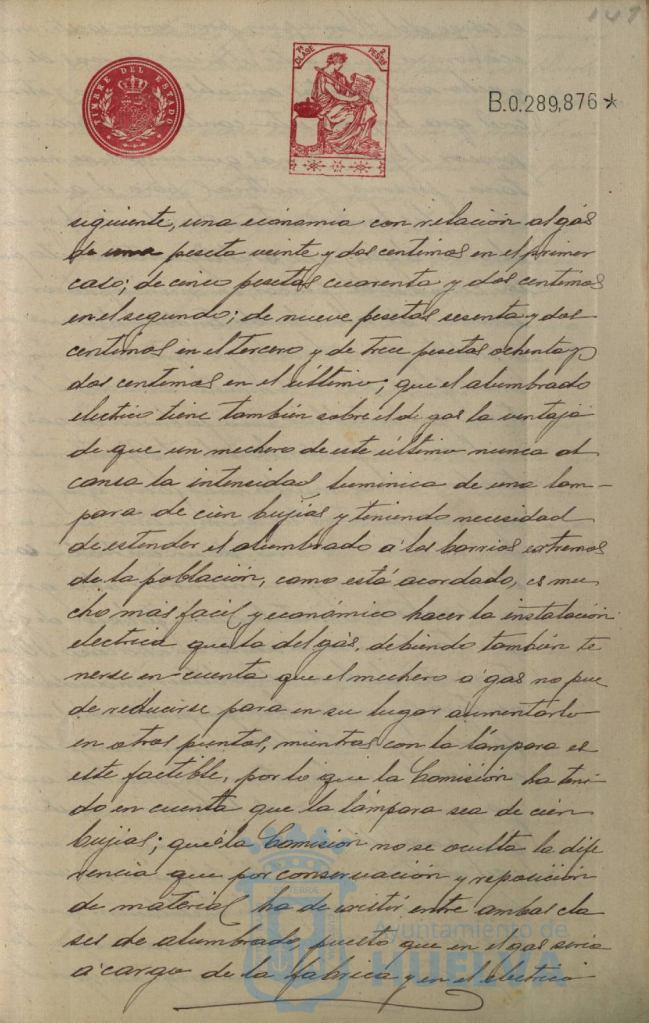 147
TIMBRE DEL ESTADO
11ª CLASE 2 PESETAS
B.0.289,876*
siguiente, una economia con relación al gás
de una peseta veinte y dos centimos en el primer
caso; de cinco pesetas cuarenta y dos centimos
en el segundo; de nueve pesetas sesenta y dos
centimos en el tercero y de trece pesetas ochenta y
dos centimos en el último; que el alumbrado
electrico tiene también sobre el de gas la ventaja
de que un mechero de este último nunca al
canza la intensidad luminica de una lam-
para de cien bujías y teniendo necesidad
de estender el alumbrado á los barrios extremos
de la población, como está acordado, es mu
cho más facil y económico hacer la instalación
electrica que la del gás, debiendo también te
nerse en cuenta que el mechero á gas no pue
de reducirse para en su lugar aumentarlo
en otros puntos, mientras con la lámpara es
este factible, por lo que la Comisión ha teni-
do en cuenta que la lámpara sea de cien
bujias; que á la Comisión no se oculta la dife
rencia que por conservación y reposición
de material ha de existir entre ambas cla
ses de alumbrado puesto que en el gas seria
á cargo de la fabrica y en el electrico
Ayuntamiento de
HUELVA